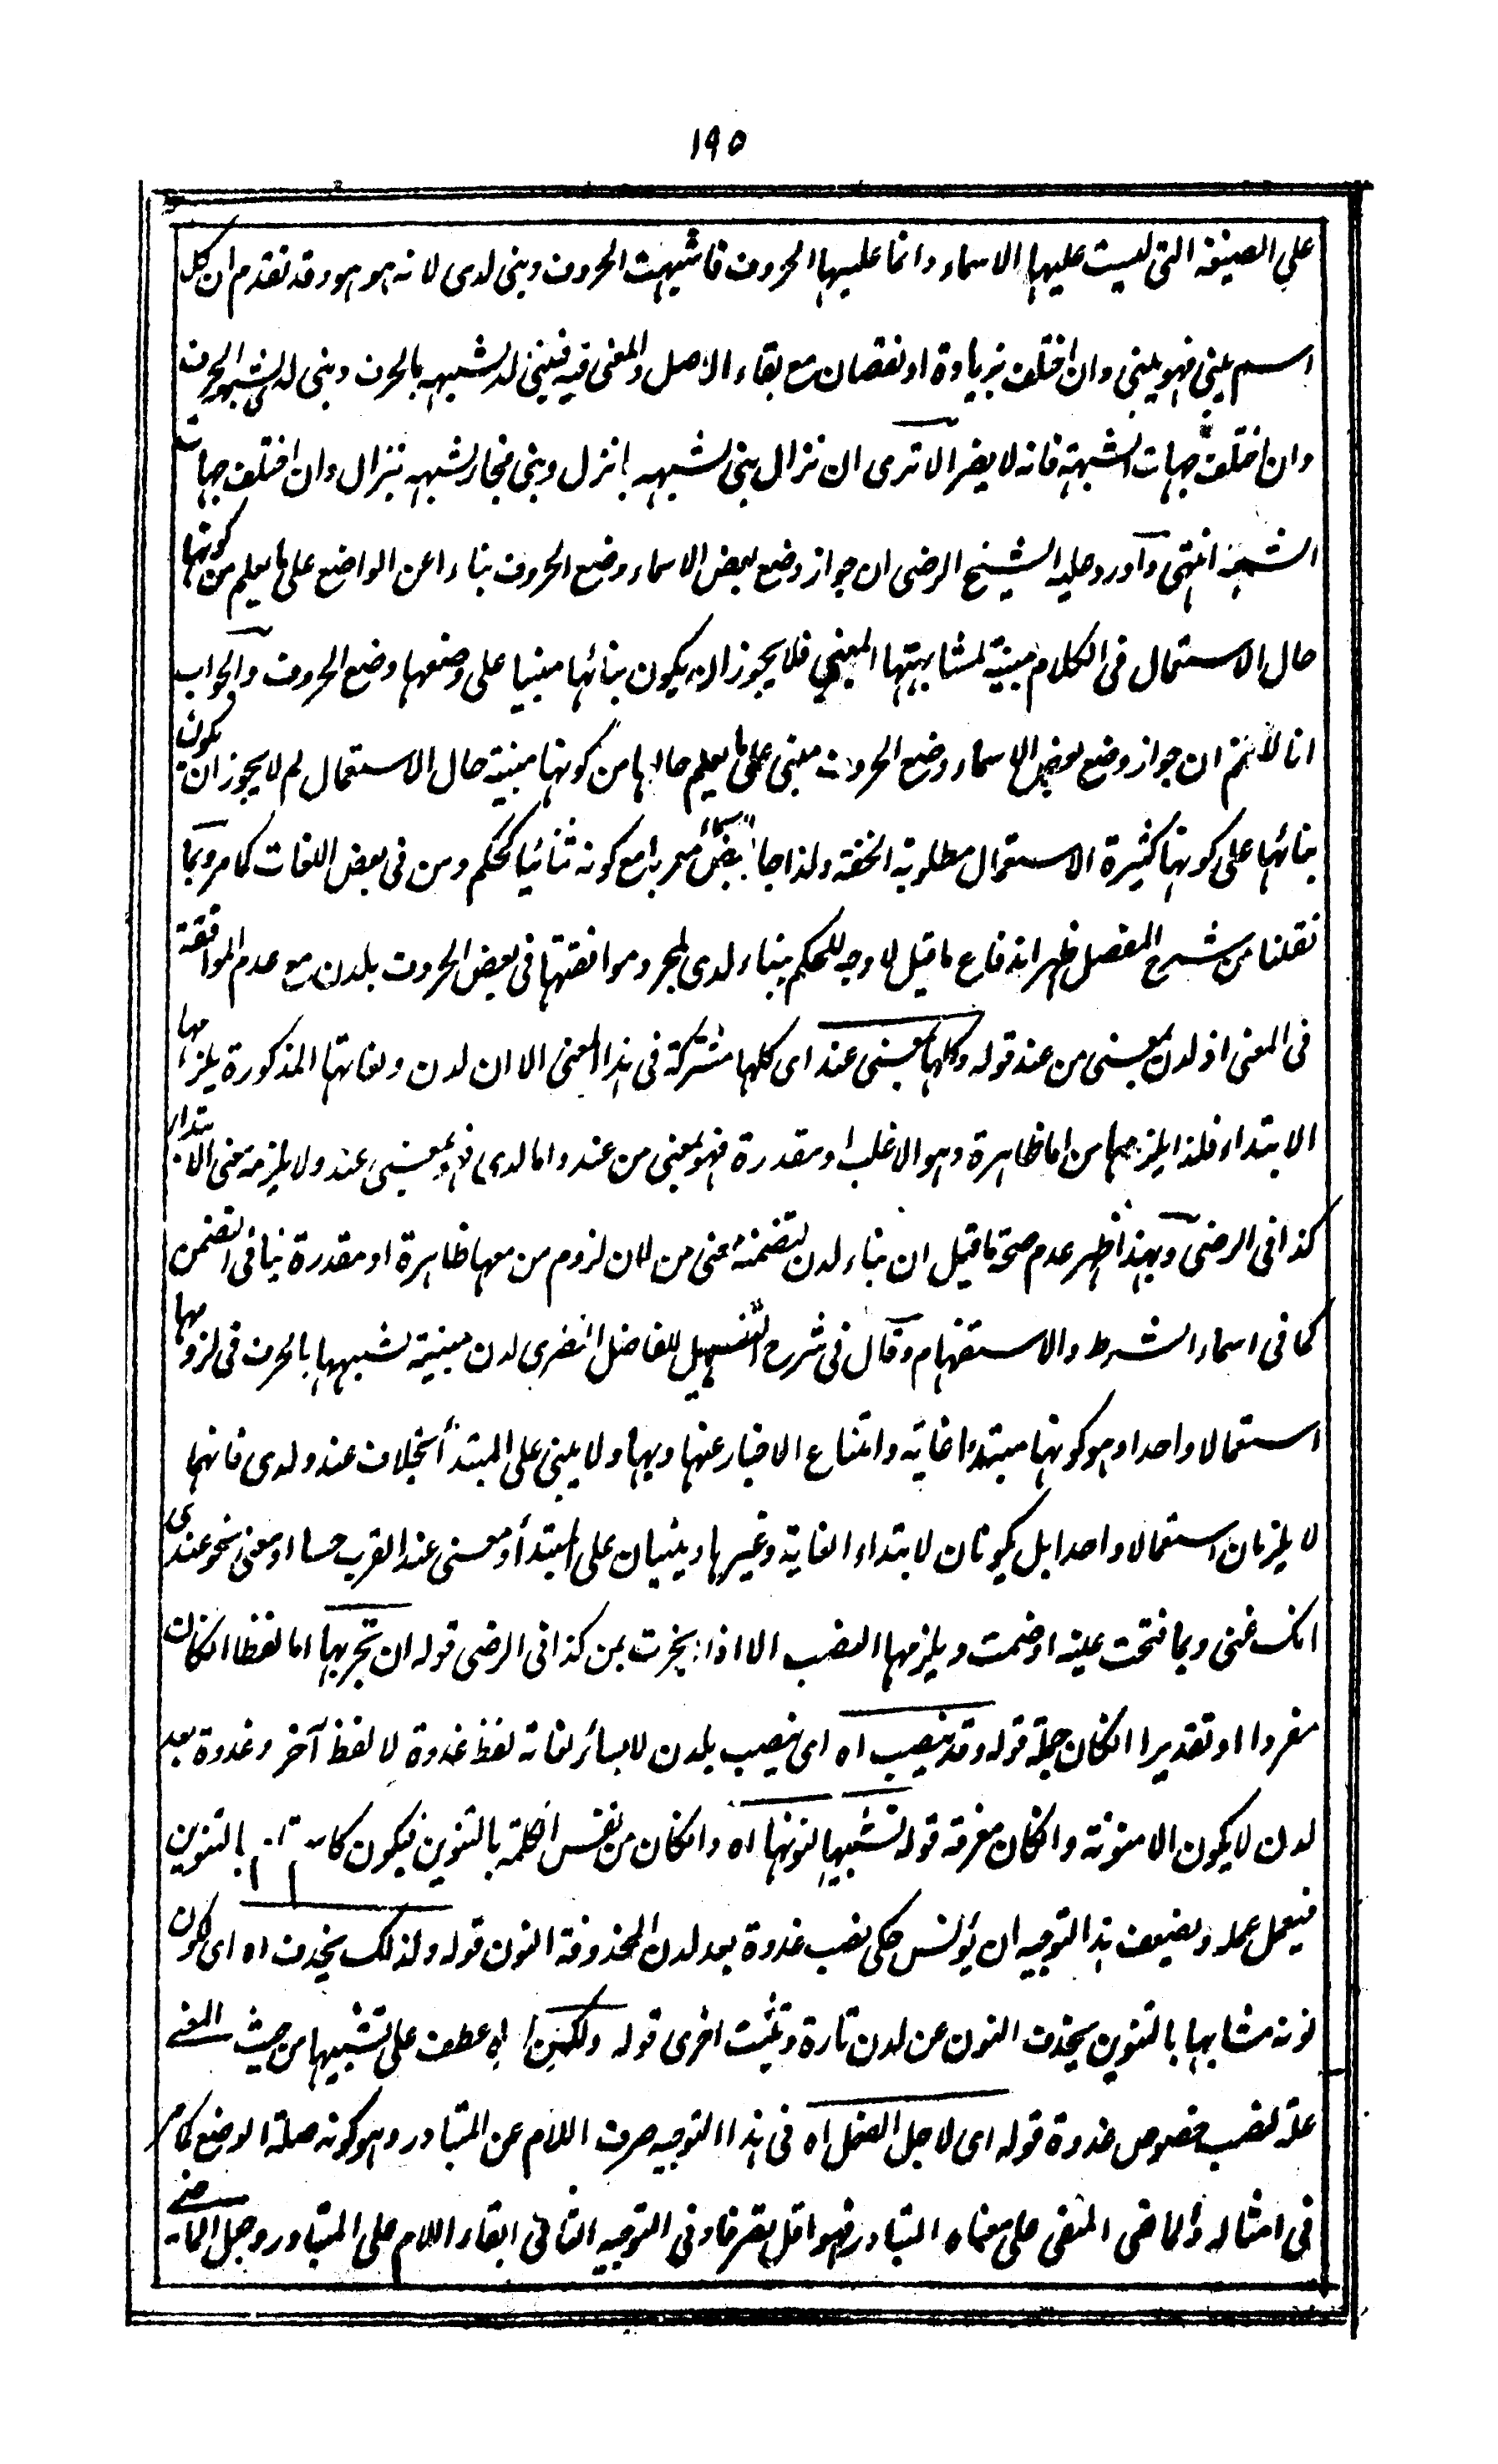 ١٩٥
على الصيغة التى ليست عليها الاسماء وانما عليها الحروف فاشبهت الحروف وبنى لدى لانه هو هو وقد تقدم ان كل
اسم بنى فهو يبنى وان اختلف بزيادة او نقصان مع بقاء الاصل والمعنى فيه فبنى لد لشبهه بالحرف وبنى لدى لشبهه الحرف
وان اختلفت جهات الشبهة فانه لا يضر الا ترى ان نزال بنى لشبهه بانزل وبنى فجار لشبهه بنزال وان اختلف جهات
الشبهة انتهى واورد عليه الشيخ الرضى ان جواز وضع بعض الاسماء وضع الحروف بناء اعن الواضع على ما يعلم من كونها
حال الاستعمال فى الكلام مبنية لمشابهتها المبنى فلا يجوز ان يكون بنائها مبنيا على وضعها وضع الحروف والجواب
انا لا نم ان جواز وضع بعض الاسماء وضع الحروف مبنى على ما يعلم حالها من كونها مبنية حال الاستعمال لم لا يجوز ان يكون
بنائها على كونها كثيرة الاستعمال مطلوبة الخفة ولذا جاء بعض الاسماء معربا مع كونه ثنائيا كحكم ومن فى بعض اللغات كما مر وبما
نقلنا من شرح المفصل ظهر اندفاع ما قيل لا وجه للحكم ببناء لدى لمجرد موافقتها فى بعض الحروف بلدن مع عدم الموافقة
فى المعنى اذ لدن بمعنى من عند قوله وكلها بمعنى عند اى كلها مشتركة فى هذا المعنى الا ان لدن ولغاتها المذكورة يلزمها
الابتداء فلذا يلزمها من اما ظاهرة وهو الاغلب او مقدرة فهو بمعنى من عند واما لدى فهو بمعنى عند ولا يلزمه معنى الابتداء
كذا فى الرضى وبهذا ظهر عدم صحة ما قيل ان بناء لدن لتضمنه معنى من لان لزوم من معها ظاهرة او مقدرة ينافى التضمن
كما فى اسماء الشرط والاستفهام وقال فى شرح التسهيل للفاضل المضرى لدن مبنية لشبهها بالحرف فى لزومها
استعمالا واحدا وهو كونها مبتدأ غاية وامتناع الاخبار عنها وبها ولا يبنى على المبتدأ بخلاف عند ولدى فانهما
لا يلزمان استعمالا واحدا بل يكونان لابتداء الغاية وغيرها ويبنيان على المبتدأ ومعنى عند القرب حسا او معنى نحو عندى
انك غنى وبما فتحت عينه او ضمت ويلزمها النصب الا اذا انجرت بمن كذا فى الرضى قوله ان تجربها اما لفظا انكان
مفردا او تقديرا انكان جملة قوله وقد ينصب اه اى ينصب بلدن لا بسائر لغاته لفظ غدوة لا لفظ آخر وغدوة بعد
لدن لا يكون الا منونة وانكان معرفة قوله تشبيها لنونها اه وانكان من نفس الكلمة بالتنوين فيكون بالتنوين
فيعمل عمله ويضعف هذا التوجيه ان يونس حكى نصب غدوة بعد لدن المحذوفة النون قوله ولذلك يحذف اه اى لكون
نونه مشابها بالتنوين يحذف النون عن لدن تارة وتثبت اخرى قوله اه عطف على تشبيها من حيث المعنى
علة لنصب خصوص غدوة قوله اى لاجل الفعل اه فى هذا التوجيه صرف اللام عن المتبادر وهو كونه صلة الوضع كما مر
فى امثاله والماضى المنفى على معناه المتبادر فهو اقل تصرفا وفى التوجيه الثانى ابقاء اللام على المتبادر وجعل الماضى